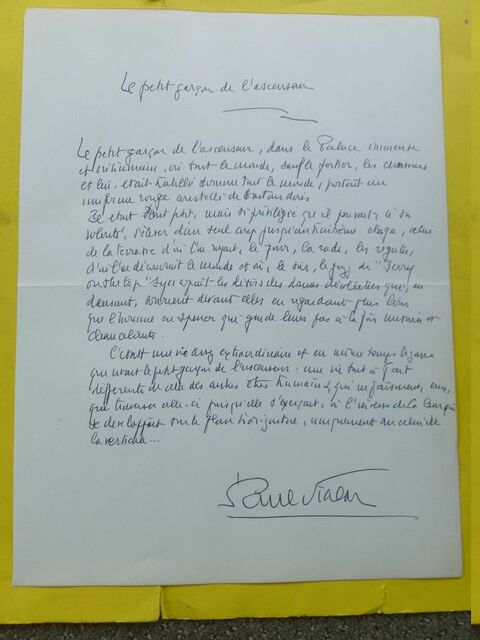 Le petit garçon de l'ascenseur
Le petit garçon de l'ascenseur, dans le Palace immense
et inhumain, où tout le monde, sauf le portier, les chasseurs
et lui, était habillé comme tout le monde, portait un
uniforme rouge constellé de boutons dorés
Il était tout petit, mais si privilégié qu'il pouvait, à sa
volonté, s'élever d'un seul coup jusqu'au huitième étage, celui
de la terrasse d'où l'on voyait, le jour, la rade, les régates,
d'où l'on découvrait le monde et où, le soir, le jazz de "Jerry
on the top" soyeux les désirs des dames décolletées qui, en
dansant, souriaient devant elles en regardant plus loin
que l'homme en smoking qui guide leurs pas à la fois
C'était une vie assez extraordinaire et en même temps bizarre
que vivait le petit garçon de l'ascenseur : une vie tout à fait
différente de celle des autres êtres humains qui ne faisaient, eux,
que traverser celle-ci puisqu'elle s'exerçait, à l'inverse de la leur qui
se développait sur le plan horizontal, uniquement au
la verticale...
Paul Vialar